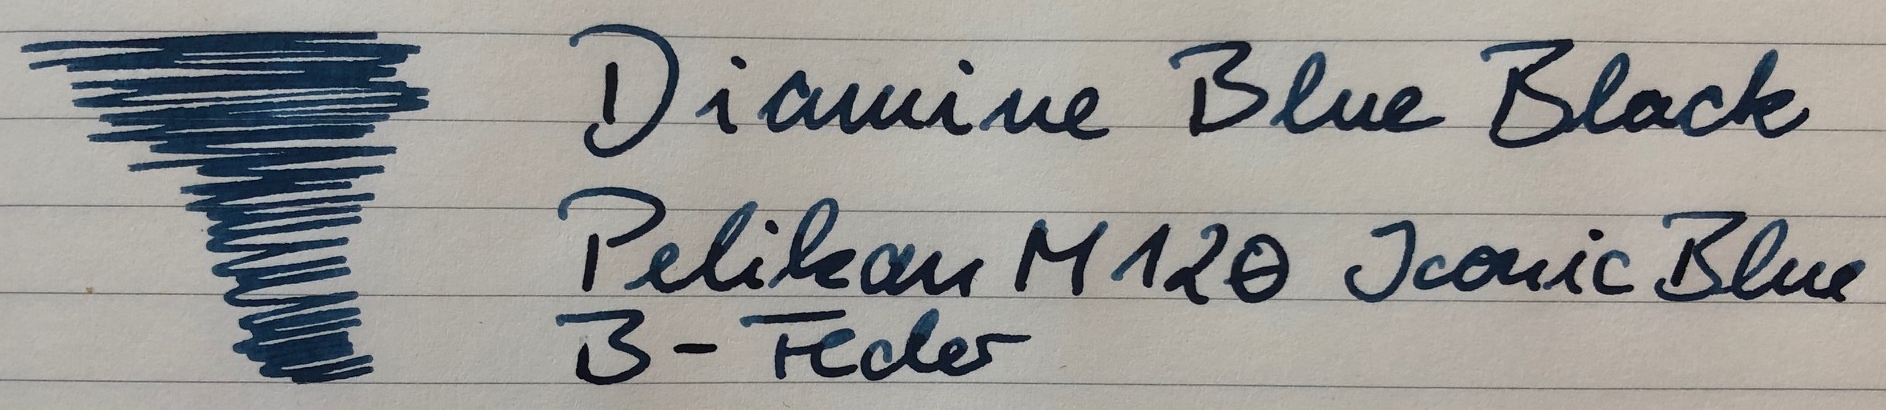 Diamine Blue Black
Pelikan M120 Iconic Blue
B-Feder